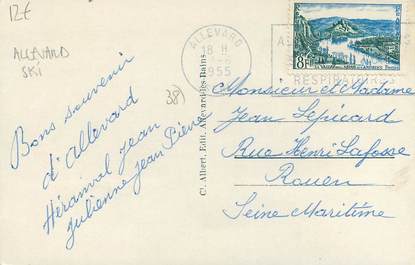 12€
ALLEVARD
SKI
38)
Bons souvenir
d'Allevard
Hérainval Jean
Julienne Jean Pierre
C¹. Albert, Edit. Allevard-les-Bains.
ALLEVARD
18 H
1955
RESPIRATOIRES
8F
Monsieur et Madame
Jean Lepicard
Rue Henri Lafosse
Rouen
Seine Maritime